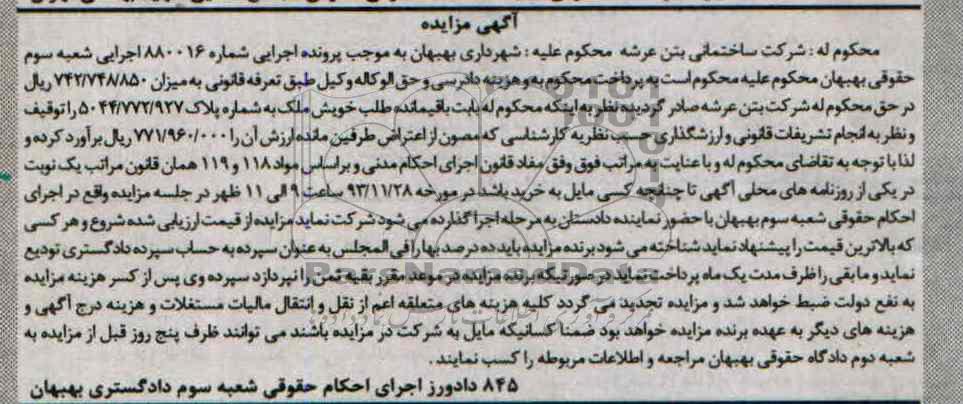 آگهی مزایده
محکوم له : شرکت ساختمانی بتن عرشه محکوم علیه : شهرداری بهبهان به موجب پرونده اجرایی شماره ۸۸۰۰۱۶ اجرایی شعبه سوم
حقوقی بهبهان محکوم علیه محکوم است به پرداخت محکوم به و هزینه دادرسی و حق الوکاله وکیل طبق تعرفه قانونی به میزان ۷۴۲/۷۴۸/۸۵۰ ریال
در حق محکوم له شرکت بتن عرشه صادر گردیده نظر به اینکه محکوم له بابت باقیمانده طلب خویش ملک به شماره پلاک ۵۰۴۴/۷۷۲/۹۲۷ را توقیف
و نظر به انجام تشریفات قانونی و ارزشگذاری حسب نظریه کارشناسی که مصون از اعتراض طرفین مانده ارزش آن را ۷۷۱/۹۶۰/۰۰۰ ریال برآورد کرده و
لذا با توجه به تقاضای محکوم له و با عنایت به مراتب فوق وفق مفاد قانون اجرای احکام مدنی و بر اساس مواد ۱۱۸ و ۱۱۹ همان قانون مراتب یک نوبت
در یکی از روزنامه های محلی آگهی تا چنانچه کسی مایل به خرید باشد در مورخه ۹۳/۱۱/۲۸ ساعت ۹ الی ۱۱ ظهر در جلسه مزایده واقع در اجرای
احکام حقوقی شعبه سوم بهبهان با حضور نماینده دادستان به مرحله اجرا گذارده می شود شرکت نماید مزایده از قیمت ارزیابی شده شروع و هر کسی
که بالاترین قیمت را پیشنهاد نماید شناخته می شود برنده مزایده باید ده درصد بها را فی المجلس به عنوان سپرده به حساب سپرده دادگستری تودیع
نماید و مابقی را ظرف مدت یک ماه پرداخت نماید در صورتیکه برنده مزایده در موعد مقرر بقیه ثمن را نپردازد سپرده وی پس از کسر هزینه مزایده
به نفع دولت ضبط خواهد شد و مزایده تجدید می گردد کلیه هزینه های متعلقه اعم از نقل و انتقال مالیات مستغلات و هزینه درج آگهی و
هزینه های دیگر به عهده برنده مزایده خواهد بود ضمنا کسانیکه مایل به شرکت در مزایده باشند می توانند ظرف پنج روز قبل از مزایده به
شعبه دوم دادگاه حقوقی بهبهان مراجعه و اطلاعات مربوطه را کسب نمایند .
۸۴۵ دادورز اجرای احکام حقوقی شعبه سوم دادگستری بهبهان
ParsNamadData